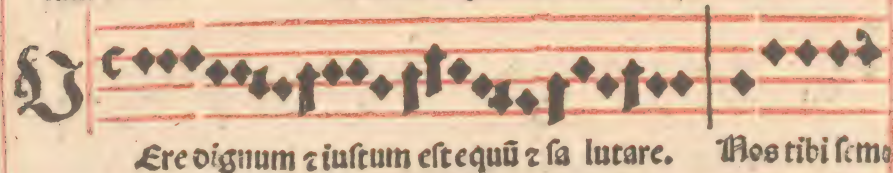 VEre dignum ⁊ iustum est equū ⁊ sa lutare. Nos tibi semp